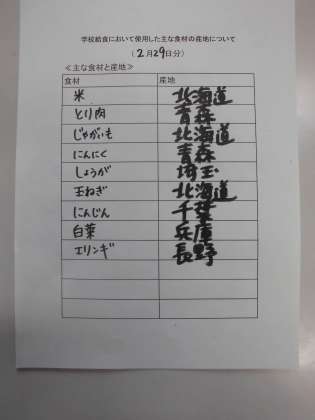 学校給食において使用した主な食材の産地について
（2月29日分）
≪主な食材と産地≫
食材 産地
米 北海道
とり肉 青森
じゃがいも 北海道
にんにく 青森
しょうが 埼玉
玉ねぎ 北海道
にんじん 千葉
白菜 兵庫
エリンギ 長野